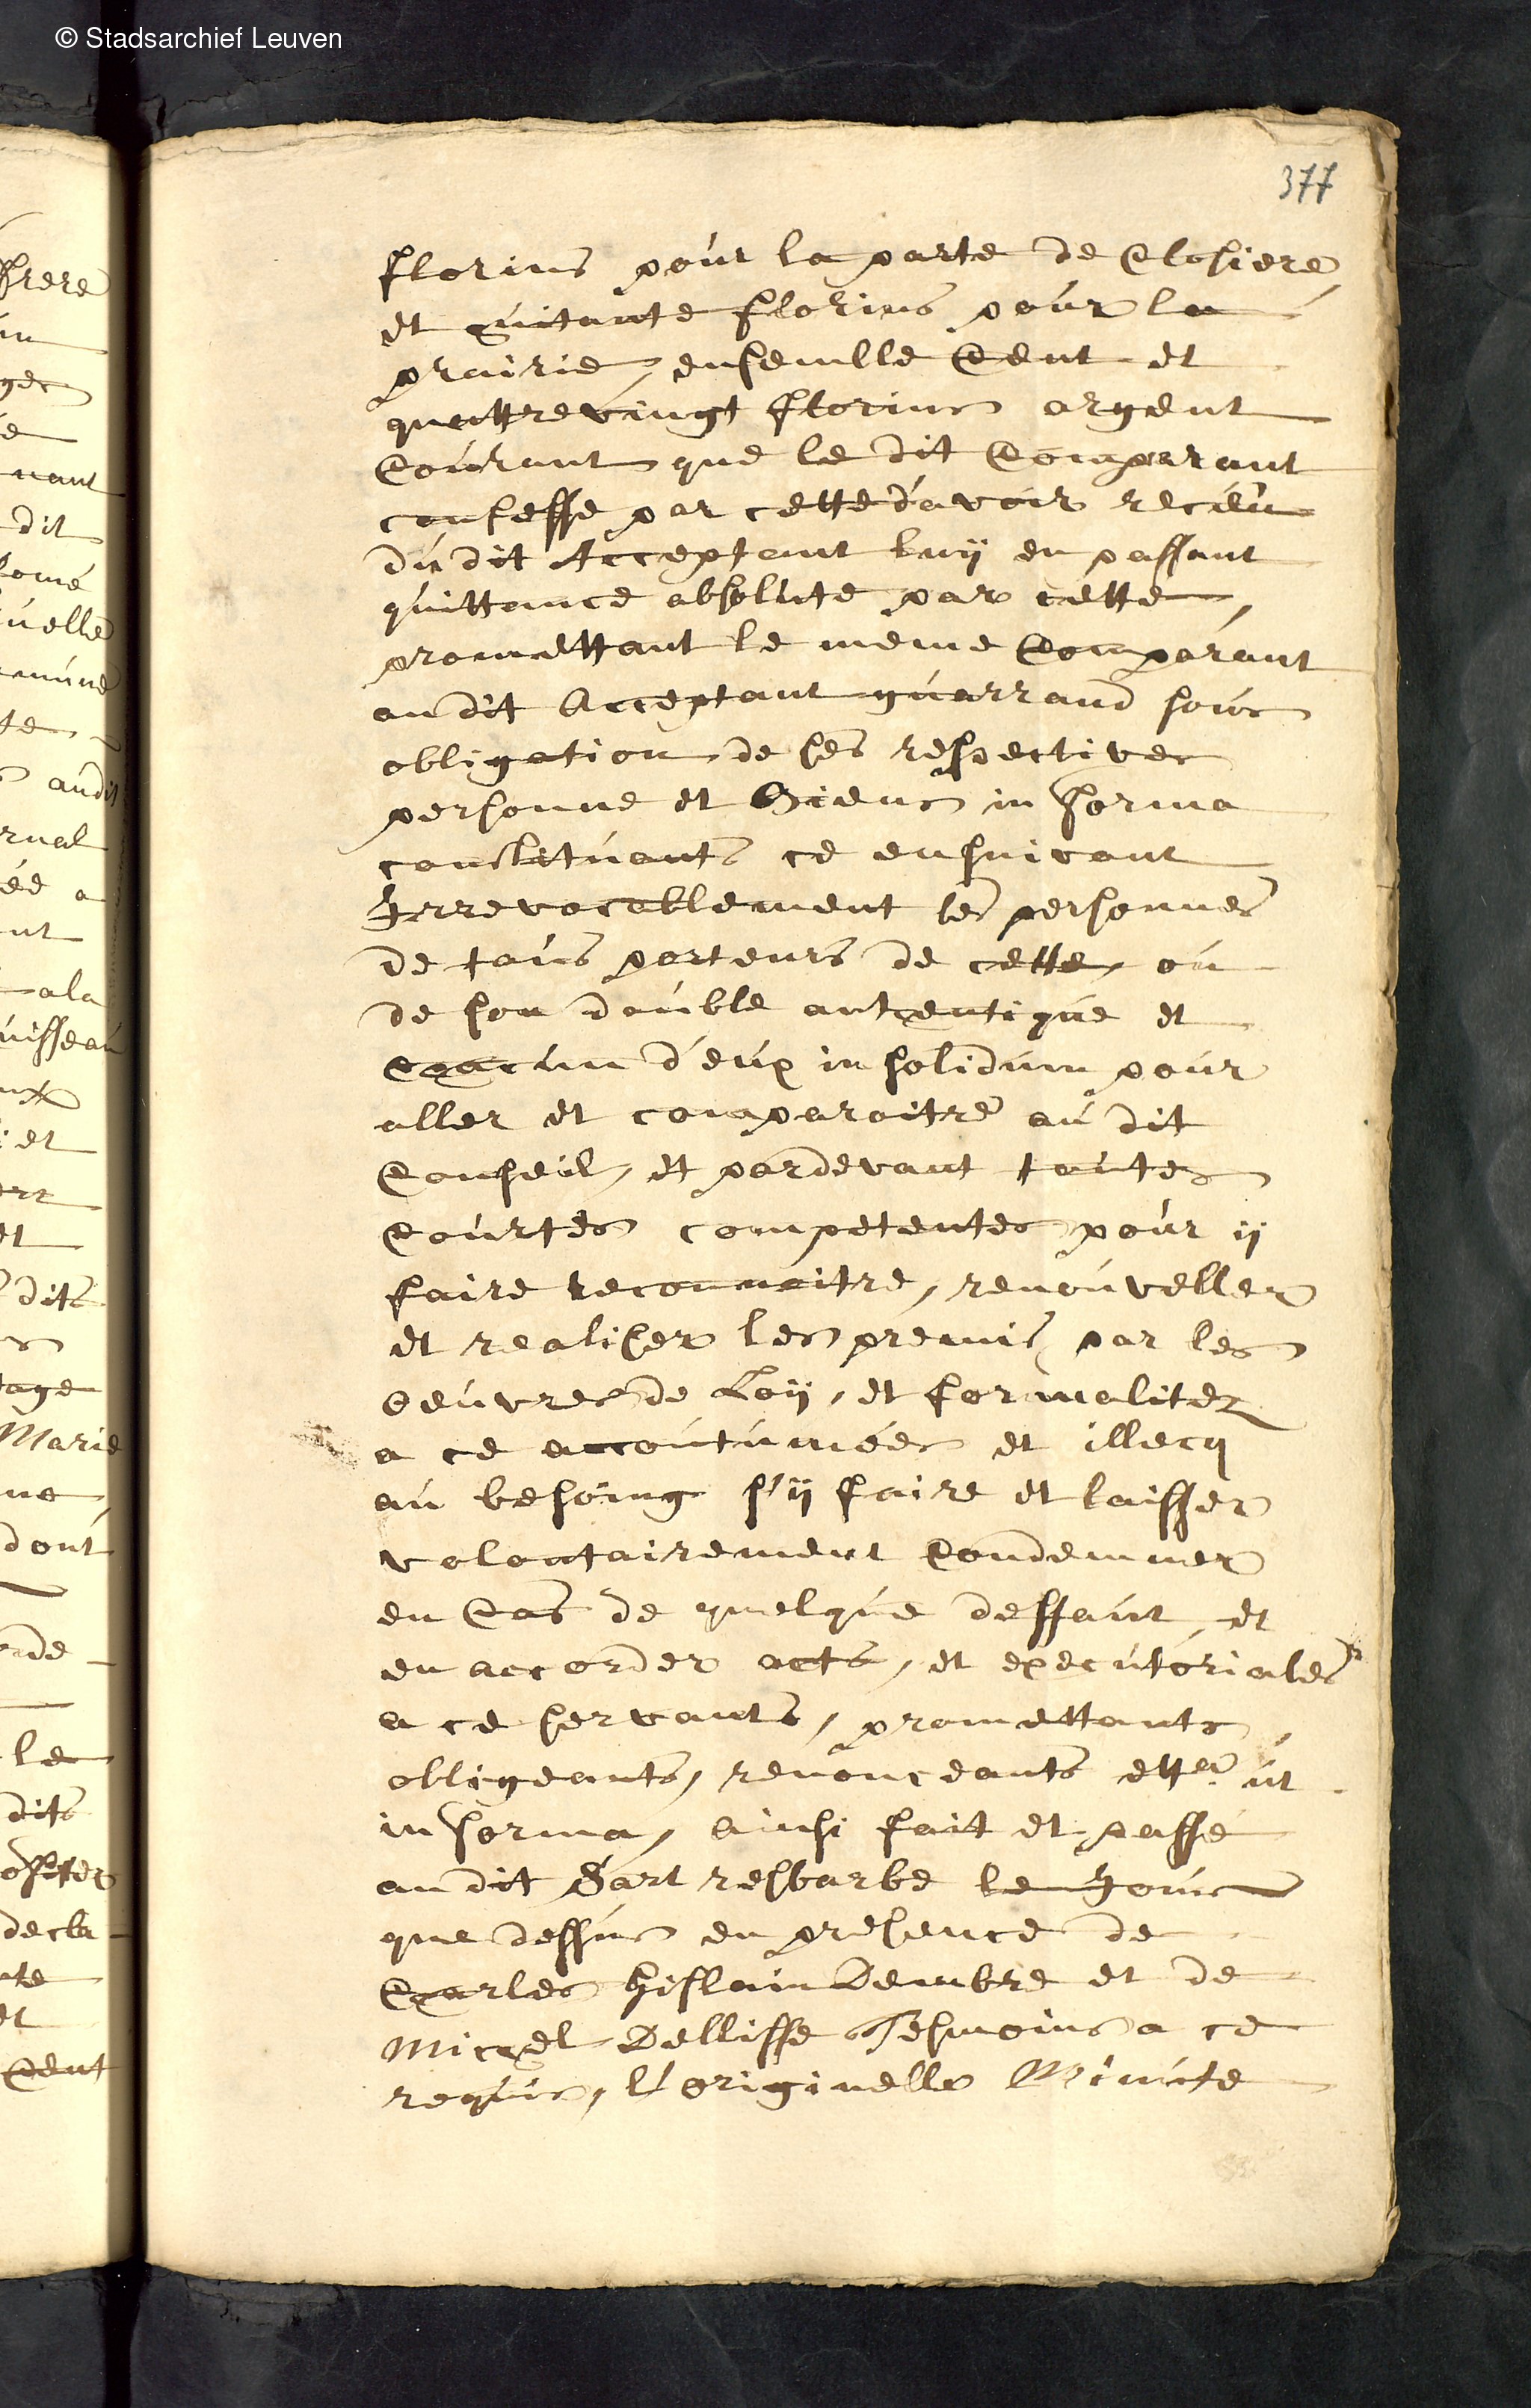 © Stadsarchief Leuven
377
florins pour la parte de Closiere
et huitante florins pour la
prairie, ensemble Cent et
quattrevingt florins argent
Courant que le dit Comparant
confesse par cette d'avoir receu
du dit Acceptant luÿ en passant
quittance absolute par cette,
promettant le meme Comparant
au dit Acceptant guarrand sous
obligation de ses respectives
personne et Biens in forma
constituants ce ensuivant
Irrevocablement les personnes
de tous porteurs de cette, ou
de son double autentique et
Chacun d'eux in solidum pour
aller et comparoitre au dit
Conseil, et pardevant toutes
Courtes competentes pour ÿ
faire reconnoitre, renouveller
et realiser les premis par les
oeuvres de Loÿ, et formalitez
a ce accoutumées et illecq
au besoing s'ÿ faire et laisser
volontairement Condemner
en Cas de quelque deffaut, et
en accorder acts, et executoriales
a ce servants, promettants,
obligeants, renonceants ettca ut
in forma, ainsi fait et passé
au dit Sart resbarbe le Jour
que dessus en presence de
Charles Hislain Dembre et de
Michel Dellisse Tesmoins a ce
requis, l'originelle Minute
frere
dit
nant
uelle
audit
a
ala
uisseau
et
dits
Marie
dont
le
dits
decla
Cent